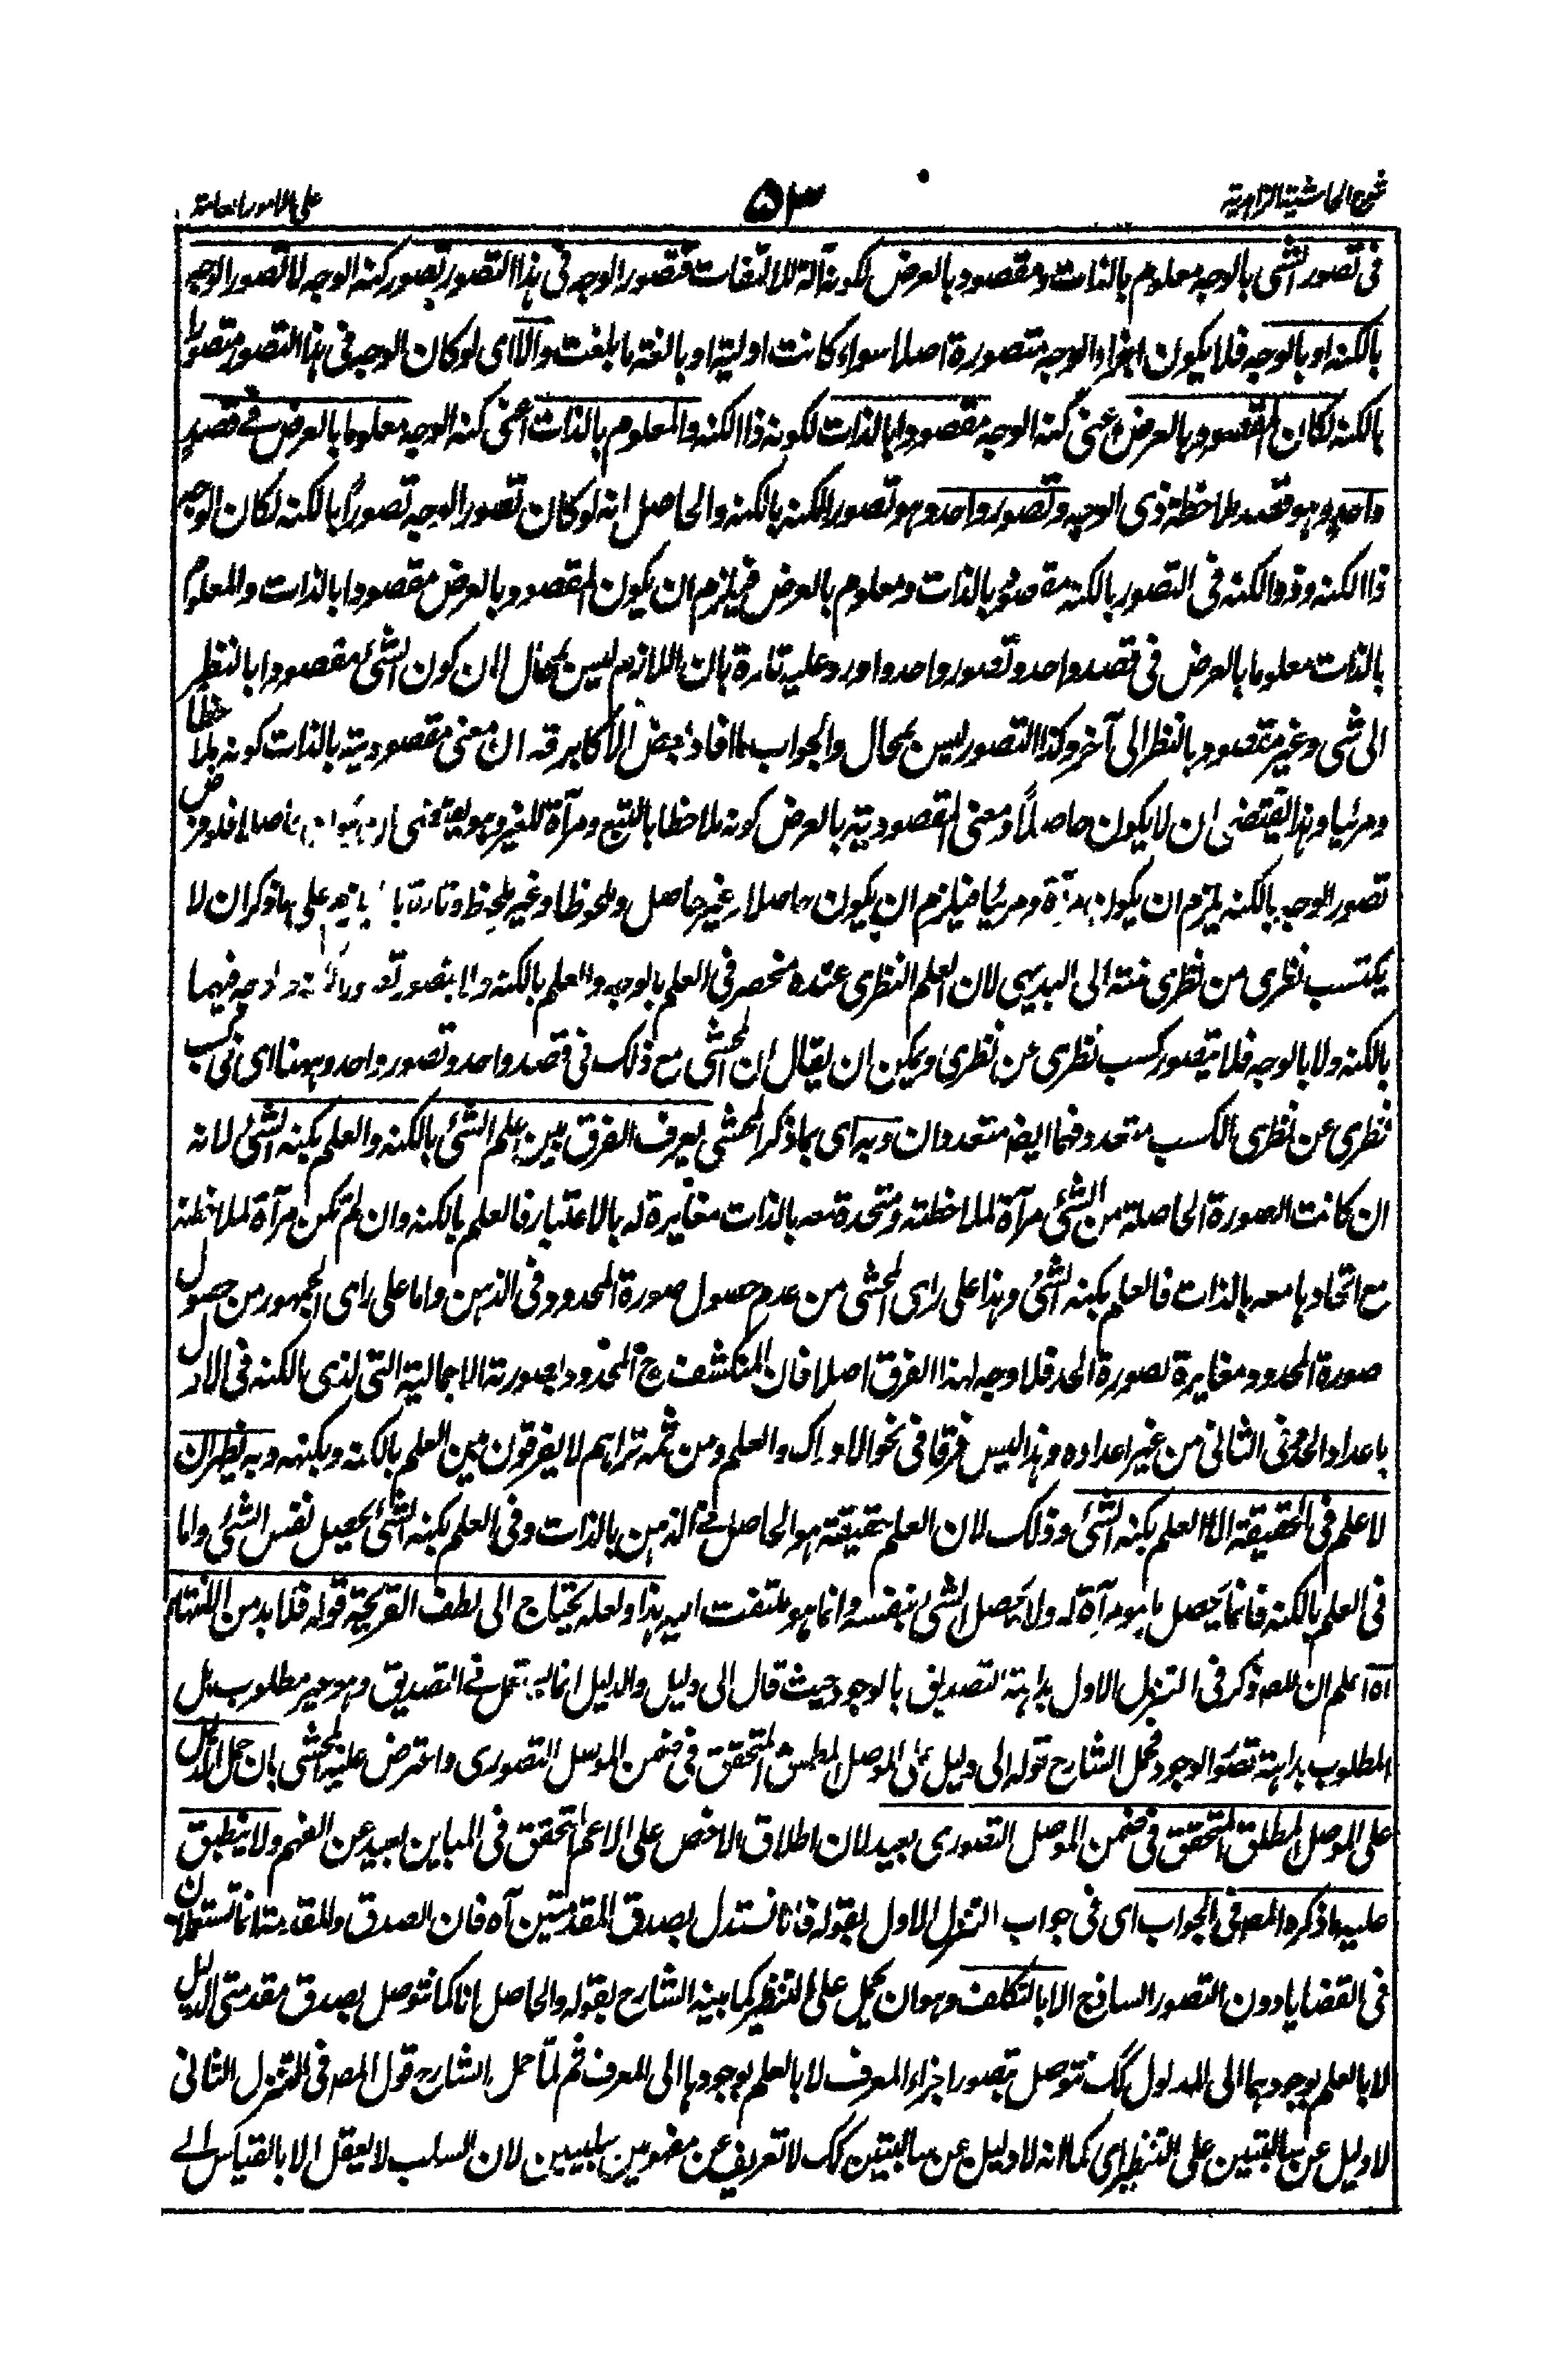 شرح الحاشية الزاهدية
۵۳
على الامور العامة
فى تصور الشئ بالوجه معلوم بالذات ومقصود بالعرض لكونه آلة للالتفات فتصور الوجه فى هذا التصور تصور كنه الوجه لا تصور الوجه
بالكنه او بالوجه فلا يكون اجزاء الوجه متصورة اصلا سواء كانت اولية او بالغة ما بلغت والا اى لو كان الوجه فى هذا التصور متصورا
بالكنه لكان المقصود بالعرض اعنى كنه الوجه مقصودا بالذات لكونه ذا الكنه والمعلوم بالذات اعنى كنه الوجه معلوما بالعرض فے قصد
واحد وهو قصد ملاحظة ذى الوجه وتصور واحد وهو تصور الكنه بالكنه والحاصل انه لو كان تصور الوجه تصورًا بالكنه لكان الوجه
ذا الكنه وذو الكنه فى التصور بالكنه مقصود بالذات ومعلوم بالعرض فيلزم ان يكون المقصود بالعرض مقصودا بالذات والمعلوم
بالذات معلوما بالعرض فى قصد واحد وتصور واحد واورد عليه تارة بان اللازم ليس بمحال لان كون الشئ مقصودا بالنظر
الى شئ وغير مقصود بالنظر الى آخر وكذا التصور ليس بمحال والجواب ما افاد بعض الاكابر قه ان معنى مقصودية بالذات كونه ملاحظا
ومرئيا وهذا يقتضى ان لا يكون حاصلًا ومعنى المقصودية بالعرض كونه ملاحظا بالتبع ومرآة للغير وهو يقتضى ان يكون حاصلا فلو فرض
تصور الوجه بالكنه يلزم ان يكون مرآة ومرئيا فيلزم ان يكون حاصلا غير حاصل وملحوظا وغير ملحوظ وتارة با على ما ذكر ان لا
يكتسب نظرى من نظرى منته الى البديهى لان العلم النظرى عنده منحصر فى العلم بالوجه والعلم بالكنه ولا يتصور فيهما
بالكنه ولا بالوجه فلا يتصور كسب نظرى عن نظرى ويمكن ان يقال ان المحشى مع ذلك فى قصد واحد وتصور واحد وههنا اى فى كسب
نظرى عن نظرى الكسب متعدد فهما ايضا متعددان وبه اى بما ذكر المحشى يعرف الفرق بين العلم الشئ بالكنه والعلم بكنه الشئ لانه
ان كانت الصورة الحاصلة من الشئ مرآة لملاحظته ومتحدة معه بالذات مغايرة له بالاعتبار فالعلم بالكنه وان لم تكن مرآة لملاحظته
مع اتحادها معه بالذات فالعلم بكنه الشئ وهذا على راى المحشى من عدم حصول صورة المحدود فى الذهن واما على راى الجمهور من حصول
صورة المحدود مغايرة لصورة الحد فلا وجه لهذا الفرق اصلا فان المنكشف ح المحدود بصورته الاجمالية التى لذى الكنه فى الاول
باعداد الحد وفى الثانى من غير اعداده وهذا ليس فرقا فى نحو الادراك والعلم ومن ثمه تراهم لا يفرقون بين العلم بالكنه وبكنهه وبه يظهر ان
لا علم فى الحقيقة الا العلم بكنه الشئ وذلك لان العلم حقيقة هو الحاصل فے الذهن بالذات وفى العلم بكنه الشئ يحصل نفس الشئ واما
فى العلم بالكنه فانما يحصل ما هو مرآة له ولا يحصل الشئ بنفسه وانما هو ملتفت اليه هذا ولعله يحتاج الى لطف القريحة قوله فلا بد من الانتهاء
اه اعلم ان المصـ ذكر فى التنزل الاول بداهة التصديق بالوجود حيث قال الى دليل والدليل انما يستعمل فے التصديق وهو غير مطلوب بل
المطلوب بداهة تصور الوجود فحمل الشارح قوله الى دليل على الموصل المطلق المتحقق فى ضمن الموصل التصورى واعترض عليه المحشى بان حمل الدليل
على الموصل المطلق المتحقق فى ضمن الموصل التصورى بعيد لان اطلاق الاخص على الاعم المتحقق فى المباين بعيد عن الفهم ولا ينطبق
عليه ما ذكره المصـ فى الجواب اى فى جواب التنزل الاول بقوله فانا نستدل بصدق المقدمتين آه فان الصدق والمقدمة انما تستعملان
فى القضايا دون التصور الساذج الا بالتكلف وهو ان يحمل على التنظير كما بينه الشارح بقوله والحاصل انا كما نتوصل بصدق مقدمتى الدليل
لا بالعلم بوجودهما الى المدلول كك نتوصل بتصور اجزاء المعرف لا بالعلم بوجودها الى المعرف ثم لما حمل الشارح قول المصـ فى التنزل الثانى
لا دليل عن سالبتين على التنظير اى كما انه لا دليل عن سالبتين كك لا تعريف عن مفهومين سلبيين لان السلب لا يعقل الا بالقياس الے